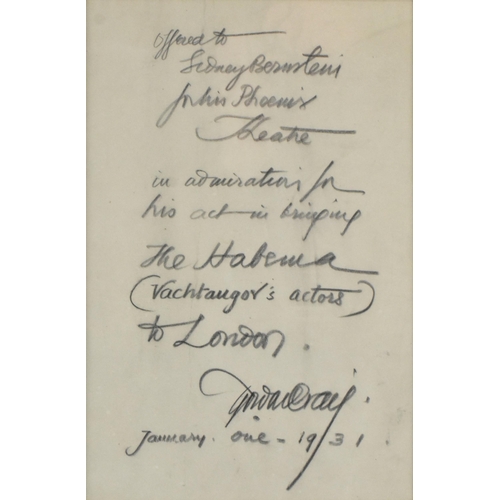 offered to
Sidney Bernstein
for his Phoenix
Theatre
in admiration for
his act in bringing
The Habima
(Vachtangov's actors)
to London.
Gordon Craig.
January. one - 1931